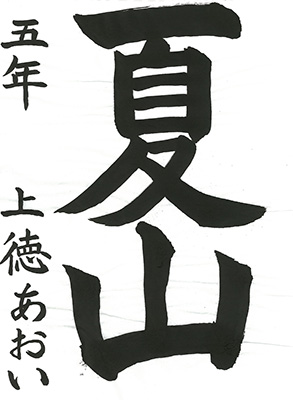 夏山
五年 上徳あおい